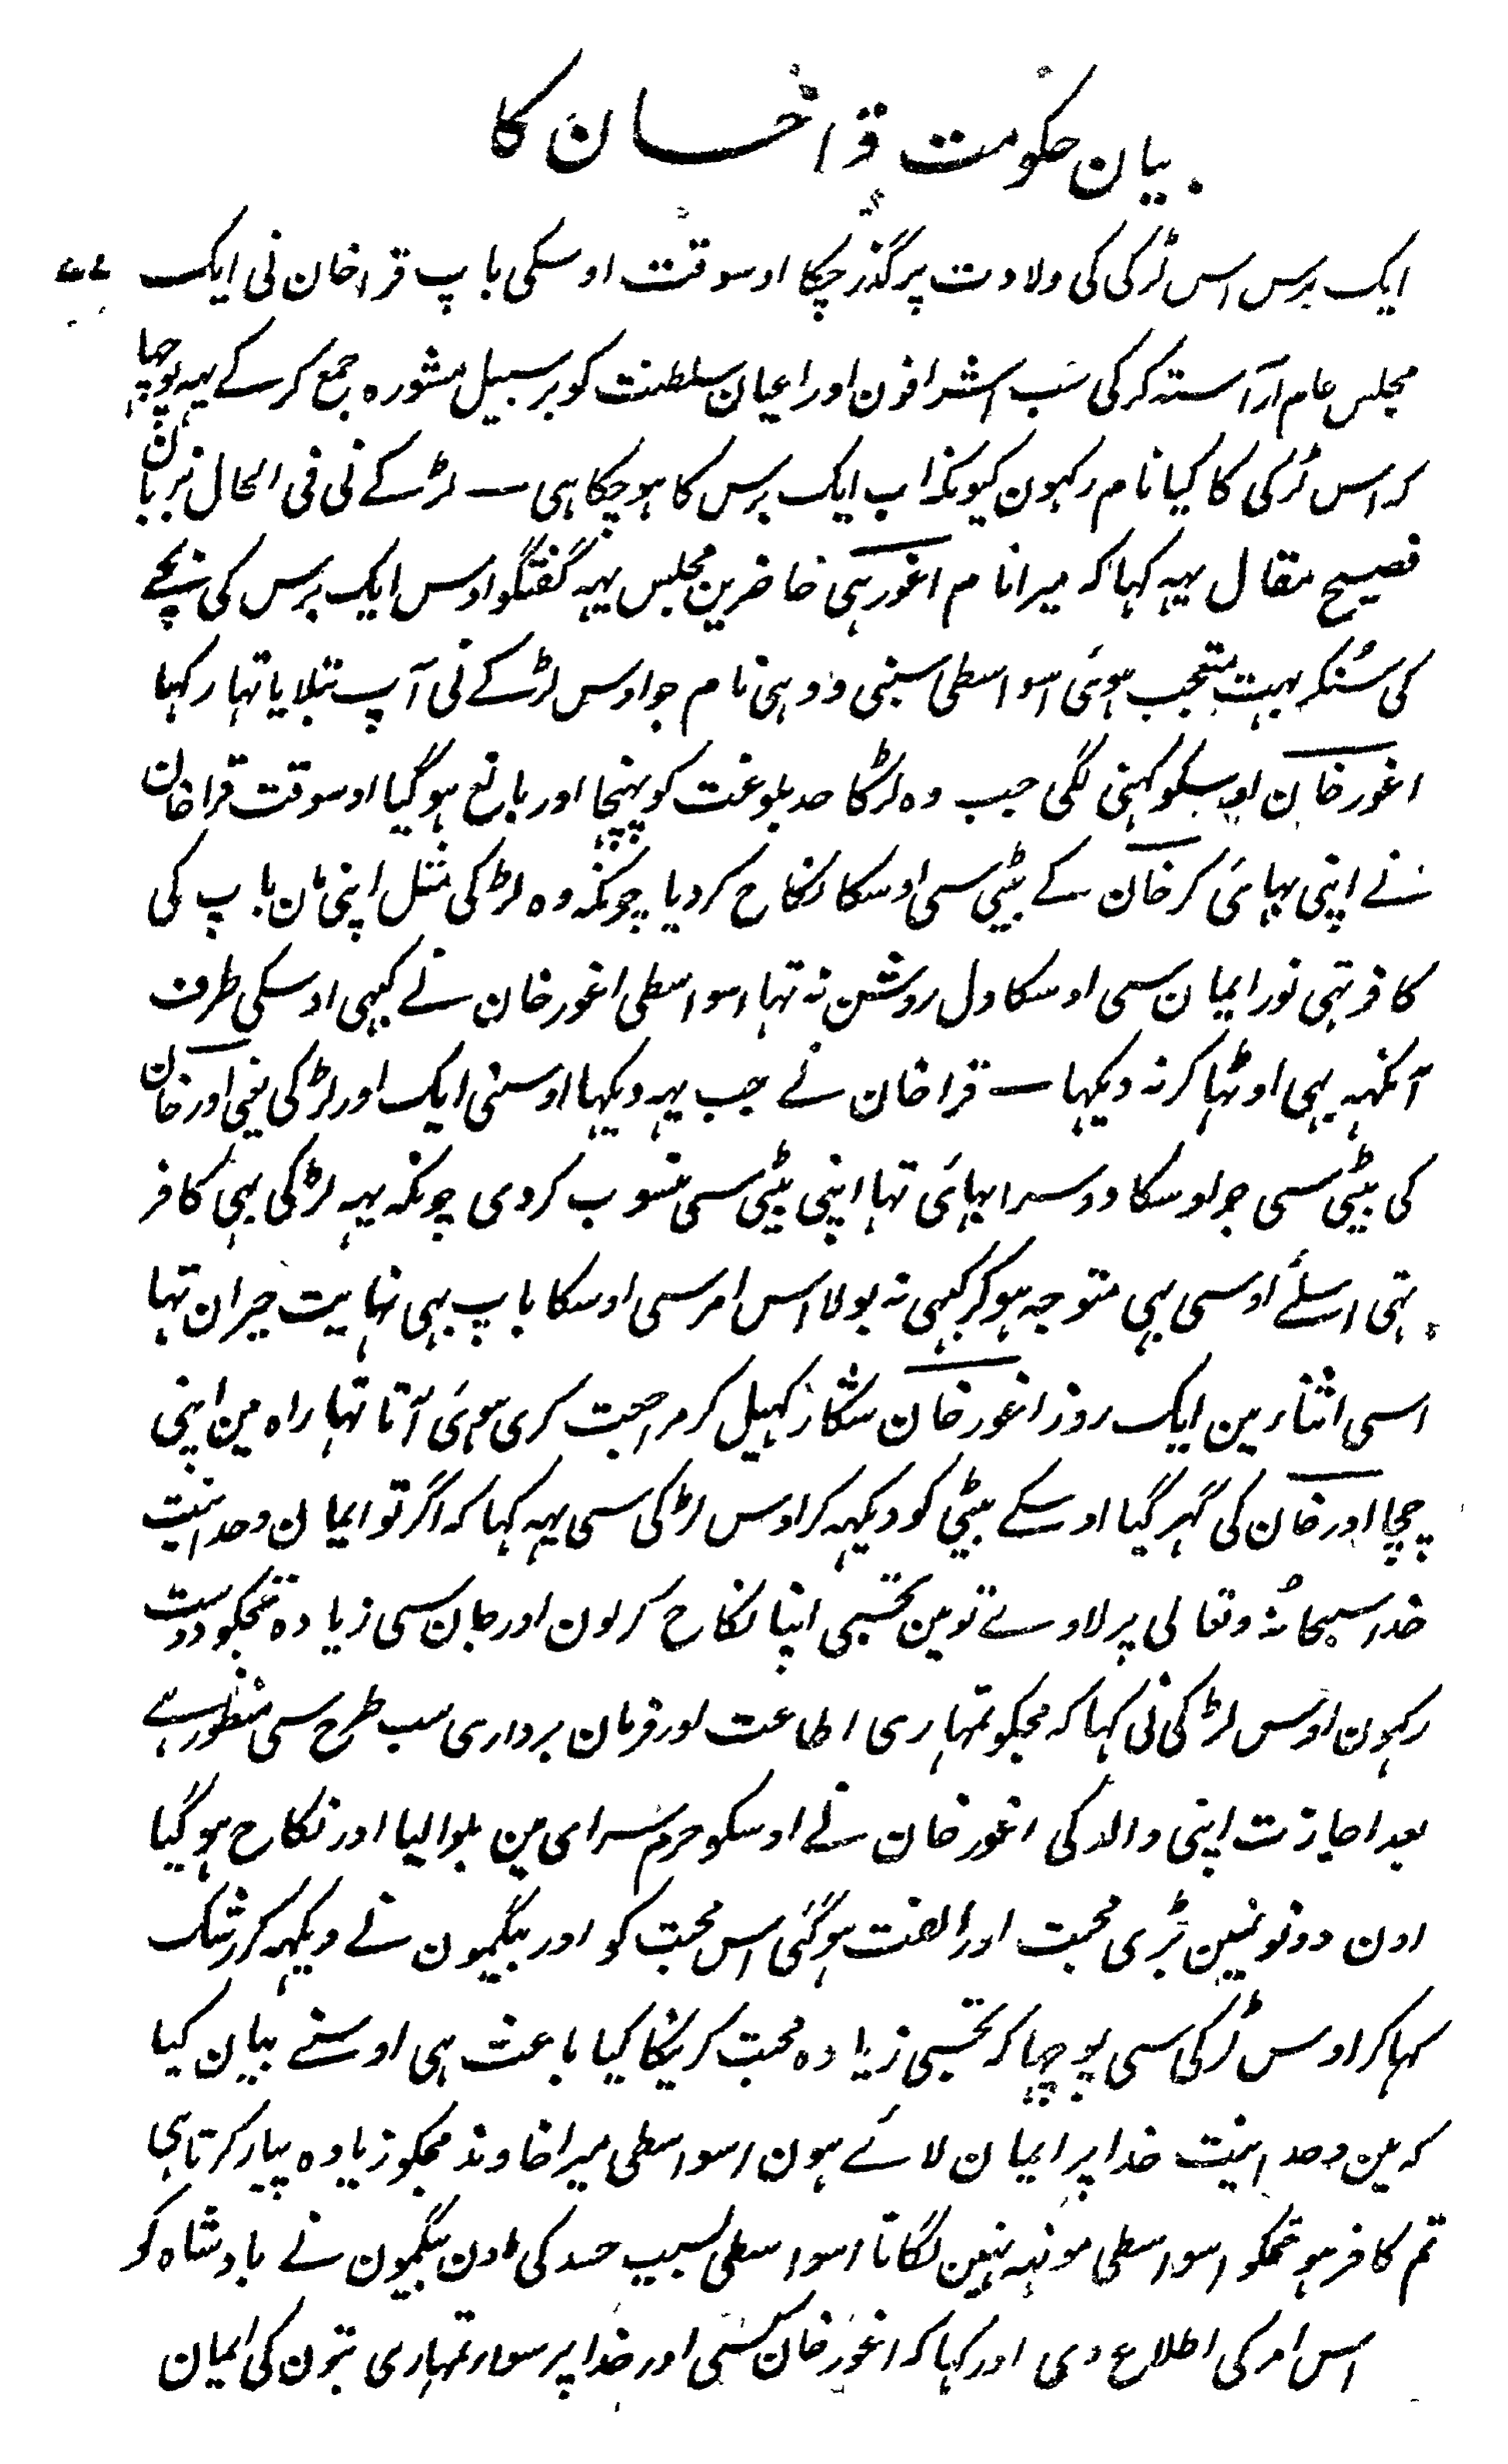 بیان حکومت قراخان کا
ایک برس اس لڑکی کی ولادت پر گذر چکا اوسوقت اوسکی باپ قراخان نی ایک
مجلس عام آراستہ کرکی سب اشرافون اور اعیان سلطنت کو بر سبیل مشورہ جمع کرکے یہہ پوچہا
کہ اس لڑکی کا کیا نام رکہون کیونکہ اب ایک برس کا ہو چکا ہی — لڑکے نی فی الحال بزبان
فصیح مقال یہہ کہا کہ میرا نام اغور ہی حاضرین مجلس یہہ گفتگو اوس ایک برس کی بچے
کی سُنکر بہت متعجب ہوئی اسواسطی سبنی وو ہی نام جو اوس لڑکے نی آپ بتلایا تہا رکہا
اغورخان اوسکو کہنی لگی جب وہ لڑکا حد بلوغت کو پہنچا اور بالغ ہو گیا اوسوقت قراخان
نے اپنی بہائی کرخان کے بیٹی سی اوسکا نکاح کردیا چونکہ وہ لڑکی مثل اپنی مان باپ کی
کافر تہی نور ایمان سی اوسکا دل روشن نہ تہا اسواسطی اغورخان نے کبہی اوسکی طرف
آنکہہ بہی اوٹہا کر نہ دیکہا — قراخان نے جب یہہ دیکہا اوسنی ایک اور لڑکی یعنی اورخان
کی بیٹی سی جو اوسکا دوسرا بہائی تہا اپنی بیٹی سی منسوب کردی چونکہ یہہ لڑکی بہی کافر
تہی اسلئے اوسی بہی متوجہ ہوکر کبہی نہ بولا اس امر سی اوسکا باپ بہی نہایت حیران تہا
اسی اثنا مین ایک روز اغورخان شکار کہیل کر مراجعت کری ہوئی آتا تہا راہ مین اپنی
چچا اورخان کی گہر گیا اوسکے بیٹی کو دیکہہ کر اوس لڑکی سی یہہ کہا کہ اگر تو ایمان وحدانیت
خدا سبحانہُ وتعالی پر لاوے تو مین تجسی اپنا نکاح کرلون اور جان سی زیادہ تجکو دوست
رکہون اوس لڑکی نی کہا کہ مجکو تمہاری اطاعت اور فرمان برداری سب طرح سی منظور ہے
بعد اجازت اپنی والد کی اغورخان نے اوسکو حرم سرای مین بلوالیا اور نکاح ہو گیا
اون دونونمین بڑی محبت اور الفت ہوگئی اس محبت کو اور بیگمون نے دیکہہ کر رشک
کہا کر اوس لڑکی سی پوچہا کہ تجسی زیادہ محبت کرنیکا کیا باعث ہی اوسنے بیان کیا
کہ مین وحدانیت خدا پر ایمان لائے ہون اسواسطی میرا خاوند مجکو زیادہ پیار کرتا ہی
تم کافر ہو تمکو اسواسطی مونہہ نہین لگاتا اسواسطی بسبب حسد کی اون بیگمون نے بادشاہ کو
اس امر کی اطلاع دی اور کہا کہ اغورخان کسی اور خدا پر سواء تمہاری بتون کی ایمان